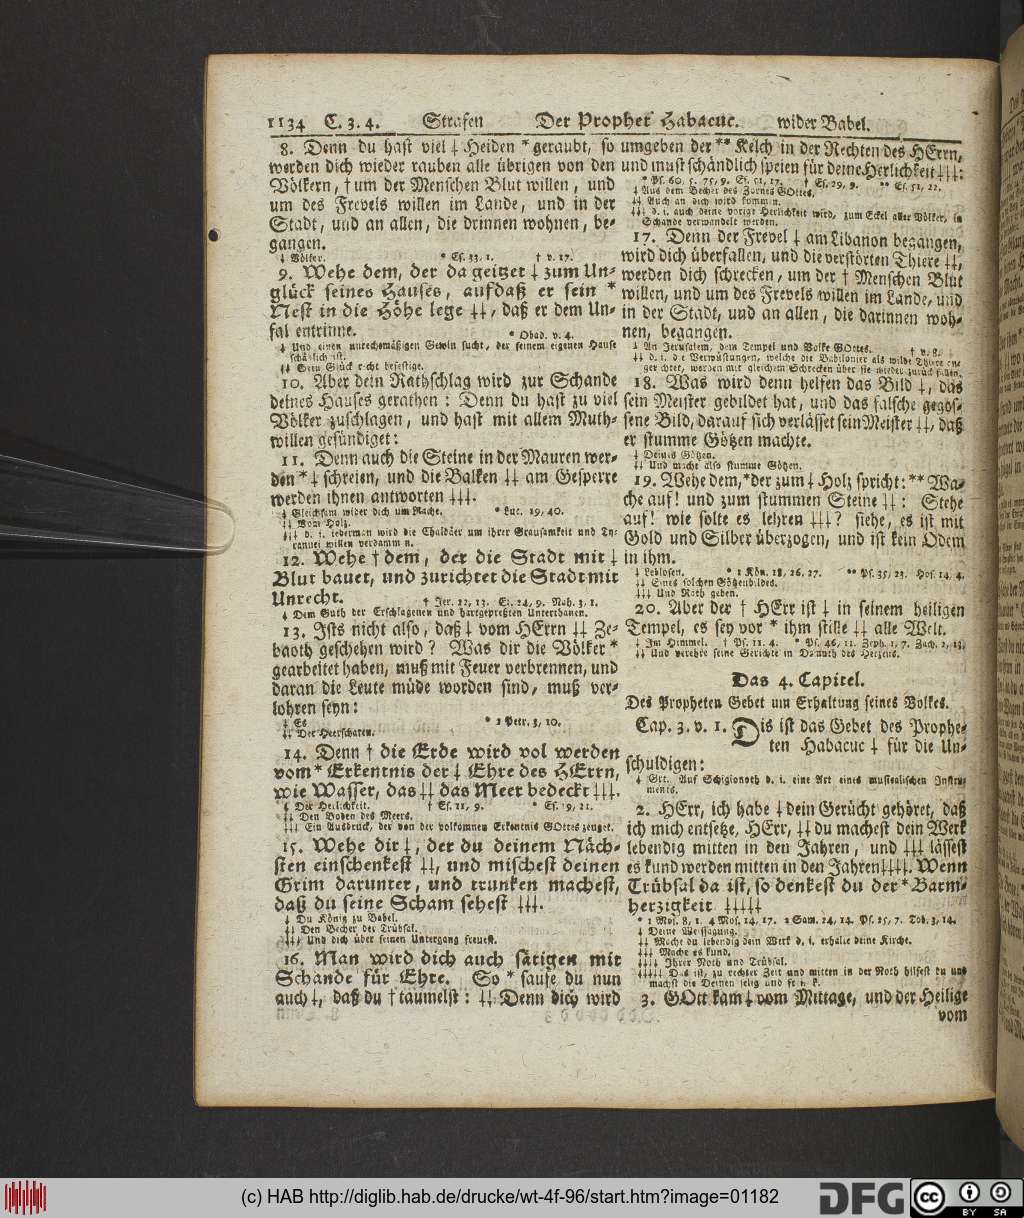 1134 C. 3. 4. Strafen Der Prophet Habacuc. wider Babel.
8. Denn du hast viel ⸸ Heiden * geraubt, so
werden dich wieder rauben alle übrigen von den
Völkern, † um der Menschen Blut willen, und
um des Frevels willen im Lande, und in der
Stadt, und an allen, die drinnen wohnen, be-
gangen.
⸸ Völker. * Es. 33. 1. † v. 17.
9. Wehe dem, der da geitzet ⸸ zum Un-
glück seines Hauses, aufdaß er sein *
Nest in die Höhe lege ⸸⸸, daß er dem Un-
fal entrinne. * Obad. v. 4.
⸸ Und einen unrechtmäßigen Gewin sucht, der seinem eigenen Hause
schädlich ist.
⸸⸸ Sein Glück recht befestige.
10. Aber dein Rathschlag wird zur Schande
deines Hauses gerathen: Denn du hast zu viel
Völker zuschlagen, und hast mit allem Muth-
willen gesündiget:
11. Denn auch die Steine in der Mauren wer-
den * ⸸ schreien, und die Balken ⸸⸸ am Gesperre
werden ihnen antworten ⸸⸸⸸.
⸸ Gleichsam wider dich um Rache. * Luc. 19, 40.
⸸⸸ Vom Holz.
⸸⸸⸸ d. i. iederman wird die Chaldäer um ihrer Grausamkeit und Ty-
rannei willen verdammen.
12. Wehe † dem, der die Stadt mit ⸸
Blut bauet, und zurichtet die Stadt mit
Unrecht. † Jer. 22, 13. Ez. 24, 9. Nah. 3, 1.
⸸ Dem Guth der Erschlagenen und hartgepreßten Unterthanen.
13. Ists nicht also, daß ⸸ vom HErrn ⸸⸸ Ze-
baoth geschehen wird? Was dir die Völker *
gearbeitet haben, muß mit Feuer verbrennen, und
daran die Leute müde worden sind, muß ver-
lohren seyn:
⸸ Es * 2 Petr. 3, 10.
⸸⸸ Der Heerscharen.
14. Denn † die Erde wird vol werden
vom * Erkentnis der ⸸ Ehre des HErrn,
wie Wasser, das ⸸⸸ das Meer bedeckt ⸸⸸⸸.
⸸ Der Herlichkeit. † Es. 11, 9. * Es. 19, 21.
⸸⸸ Den Boden des Meers.
⸸⸸⸸ Ein Ausdruck, der von der volkomnen Erkentnis GOttes zeuget.
15. Wehe dir ⸸, der du deinem Näch-
sten einschenkest ⸸⸸, und mischest deinen
Grim darunter, und trunken machest,
daß du seine Scham sehest ⸸⸸⸸.
⸸ Du König zu Babel.
⸸⸸ Den Becher der Trübsal.
⸸⸸⸸ Und dich über seinen Untergang freuest.
16. Man wird dich auch sätigen mit
Schande für Ehre. So * saufe du nun
auch ⸸, daß du † taumelst: ⸸⸸ Denn dich wird
umgeben der ** Kelch in der Rechten des HErrn,
und must schändlich speien für deine Herlichkeit ⸸⸸⸸:
* Ps. 60, 5. 75, 9. Es. 51, 17. † Es. 29, 9. ** Es. 51, 22.
⸸ Aus dem Becher des Zornes GOttes.
⸸⸸ Auch an dich wird kommen.
⸸⸸⸸ d. i. auch deine vorige Herlichkeit wird, zum Eckel aller Völker, in
Schande verwandelt werden.
17. Denn der Frevel ⸸ am Libanon begangen,
wird dich überfallen, und die verstörten Thiere ⸸⸸,
werden dich schrecken, um der † Menschen Blut
willen, und um des Frevels willen im Lande, und
in der Stadt, und an allen, die darinnen woh-
nen, begangen.
⸸ An Jerusalem, dem Tempel und Volke GOttes. † v. 8.
⸸⸸ d. i. die Verwüstungen, welche die Babilonier als wilde Thiere an-
gerichtet, werden mit gleichem Schrecken über sie wieder zurück fallen.
18. Was wird denn helfen das Bild ⸸, das
sein Meister gebildet hat, und das falsche gegos-
sene Bild, darauf sich verlässet sein Meister ⸸⸸, daß
er stumme Götzen machte.
⸸ Deines Götzen.
⸸⸸ Und macht also stumme Götzen.
19. Wehe dem, * der zum ⸸ Holz spricht: ** Wa-
che auf! und zum stummen Steine ⸸⸸: Stehe
auf! wie solte es lehren ⸸⸸⸸? siehe, es ist mit
Gold und Silber überzogen, und ist kein Odem
in ihm.
⸸ Leblosen. * 1 Kön. 18, 26. 27. ** Ps. 35, 23. Hos. 14, 4.
⸸⸸ Eines solchen Götzenbildes.
⸸⸸⸸ Und Rath geben.
20. Aber der † HErr ist ⸸ in seinem heiligen
Tempel, es sey vor * ihm stille ⸸⸸ alle Welt.
⸸ Im Himmel. † Ps. 11. 4. * Ps. 46, 11. Zeph. 1, 7. Zach. 2, 13.
⸸⸸ Und verehre seine Gerichte in Demuth des Herzens.
Das 4. Capitel.
Des Propheten Gebet um Erhaltung seines Volkes.
Cap. 3. v. 1. Dis ist das Gebet des Prophe-
ten Habacuc ⸸ für die Un-
schuldigen:
⸸ Grt. Auf Schigionoth d. i. eine Art eines musicalischen Instru-
ments.
2. HErr, ich habe ⸸ dein Gerücht gehöret, daß
ich mich entsetze, HErr, ⸸⸸ du machest dein Werk
lebendig mitten in den Jahren, und ⸸⸸⸸ lässest
es kund werden mitten in den Jahren ⸸⸸⸸⸸. Wenn
Trübsal da ist, so denkest du der * Barm-
herzigkeit ⸸⸸⸸⸸⸸
* 1 Mos. 8, 1. 4 Mos. 14, 17. 2 Sam. 24, 14. Ps. 25, 7. Tob. 3, 14.
⸸ Deine Weissagung.
⸸⸸ Mache du lebendig dein Werk d. i. erhalte deine Kirche.
⸸⸸⸸ Mache es kund.
⸸⸸⸸⸸ Ihrer Noth und Trübsal.
⸸⸸⸸⸸⸸ Das ist, zu rechter Zeit und mitten in der Noth hilfest du uns
machst die Deinen selig und
3. GOtt kam ⸸ vom Mittage, und der Heilige
vom
(c) HAB http://diglib.hab.de/drucke/wt-4f-96/start.htm?image=01182
DFG cc BY SA